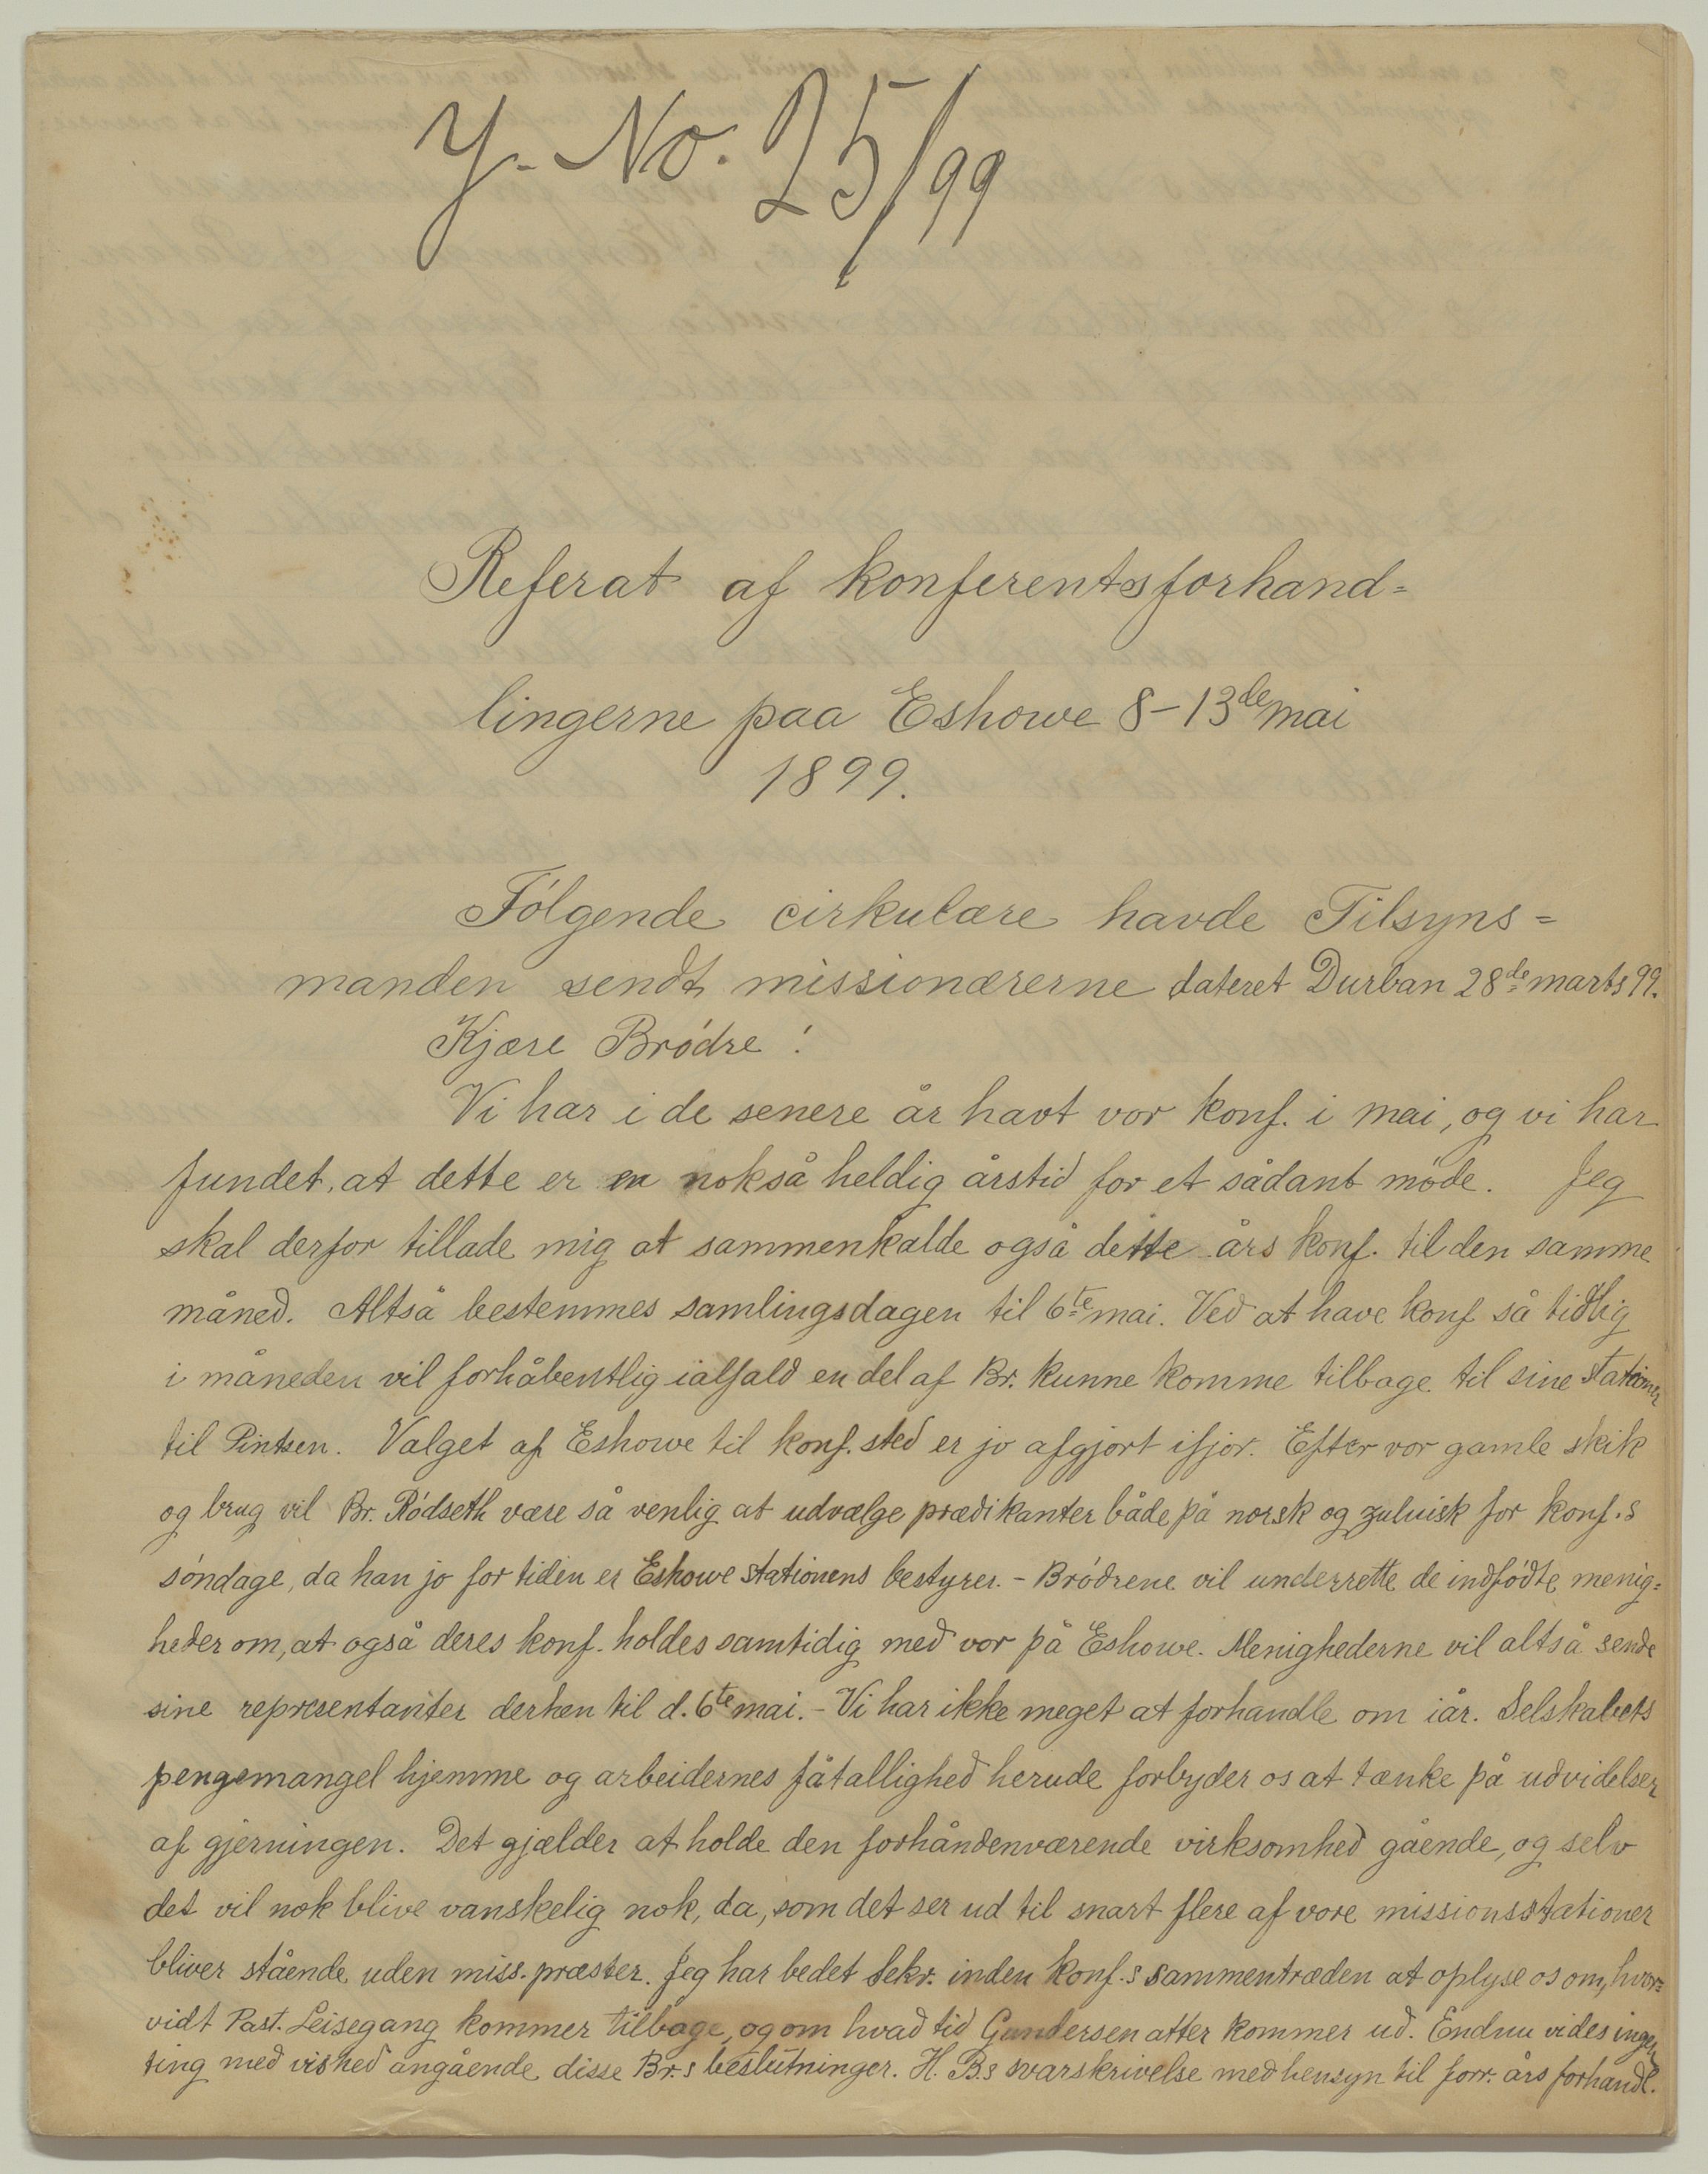 J. No. 25/99
Referat af konferentsforhand=
lingerne paa Eshowe 8-13de mai
1899.
Følgende cirkulære havde Tilsyns=
manden sendt missionærerne dateret Durban 28de marts 99.
Kjære Brødre!
Vi har i de senere år havt vor konf. i mai, og vi har
fundet, at dette er en nokså heldig årstid for et sådant møde. Jeg
skal derfor tillade mig at sammenkalde også dette års konf. til den samme
måned. Altså bestemmes samlingsdagen til 6te mai. Ved at have konf så tidlig
i måneden vil forhåbentlig ialfald en del af Br. kunne komme tilbage til sine stationer
til Pintsen. Valget af Eshowe til konf. sted er jo afgjort ifjor. Efter vor gamle skik
og brug vil Br. Rødseth være så venlig at udvælge prædikanter både på norsk og zuluisk for konf.s
søndage, da han jo for tiden er Eshowe stationens bestyrer. - Brødrene vil underrette de indfødte menig=
heder om, at også deres konf. holdes samtidig med vor på Eshowe. Menighederne vil altså sende
sine representanter derhen til d. 6te mai. - Vi har ikke meget at forhandle om iår. Selskabets
pengemangel hjemme og arbeidernes fåtallighed herude forbyder os at tænke på udvidelser
af gjerningen. Det gjælder at holde den forhåndenværende virksomhed gående, og selv
det vil nok blive vanskelig nok, da, som det ser ud til snart flere af vore missionsstationer
bliver stående uden miss. præster. Jeg har bedet Sekr. inden konf.s sammentræden at oplyse os om, hvor=
vidt Past. Leisegang kommer tilbage, og om hvad tid Gundersen atter kommer ud. Endnu vides ingen
ting med vished angående disse Br.s beslutninger. H. B.s svarskrivelse med hensyn til forr. års forhandl.